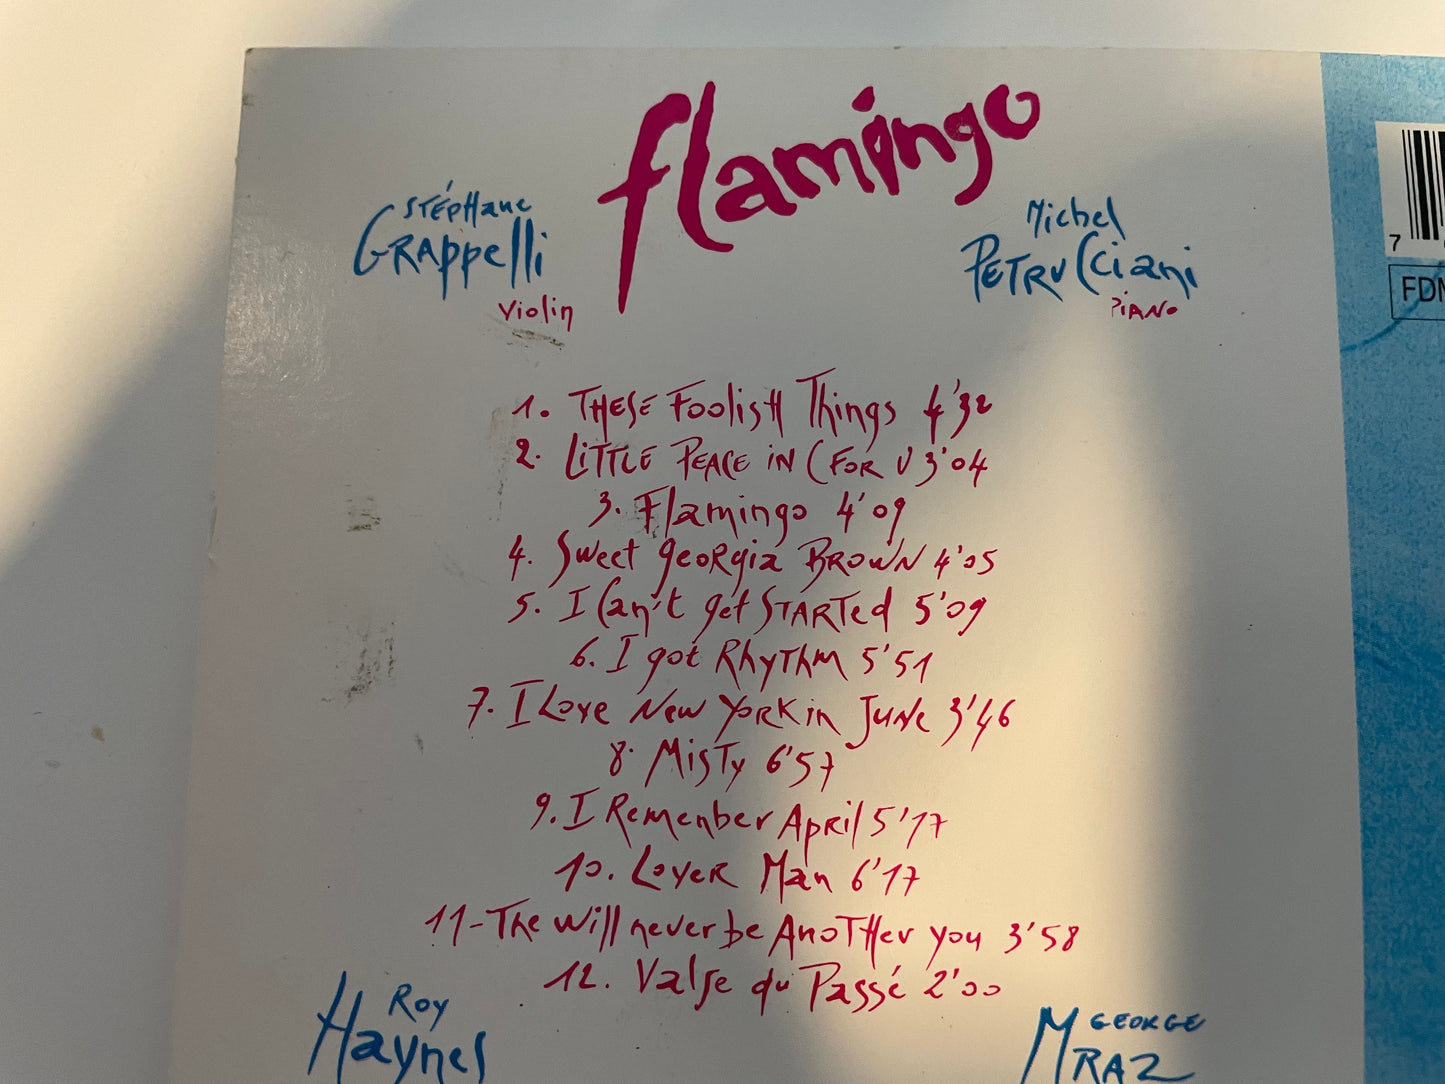 flamingo
STÉPHANE
GRAPPELLI
violin
Michel
PETRUCCIANI
PIANO
7
FDM
1. THESE FOOLISH Things 4'32
2. LITTLE PEACE IN C FOR U 3'04
3. Flamingo 4'09
4. Sweet georgia BROWN 4'05
5. I Can't get STARTED 5'09
6. I got RhyThM 5'51
7. I LOVE NEW YORK in JUNE 3'46
8. MISTY 6'57
9. I Remenber April 5'17
10. LOVER Man 6'17
11-The Will never be AnoTHer you 3'58
12. Valse du Passé 2'00
ROY
Haynes
GEORGE
MRAZ